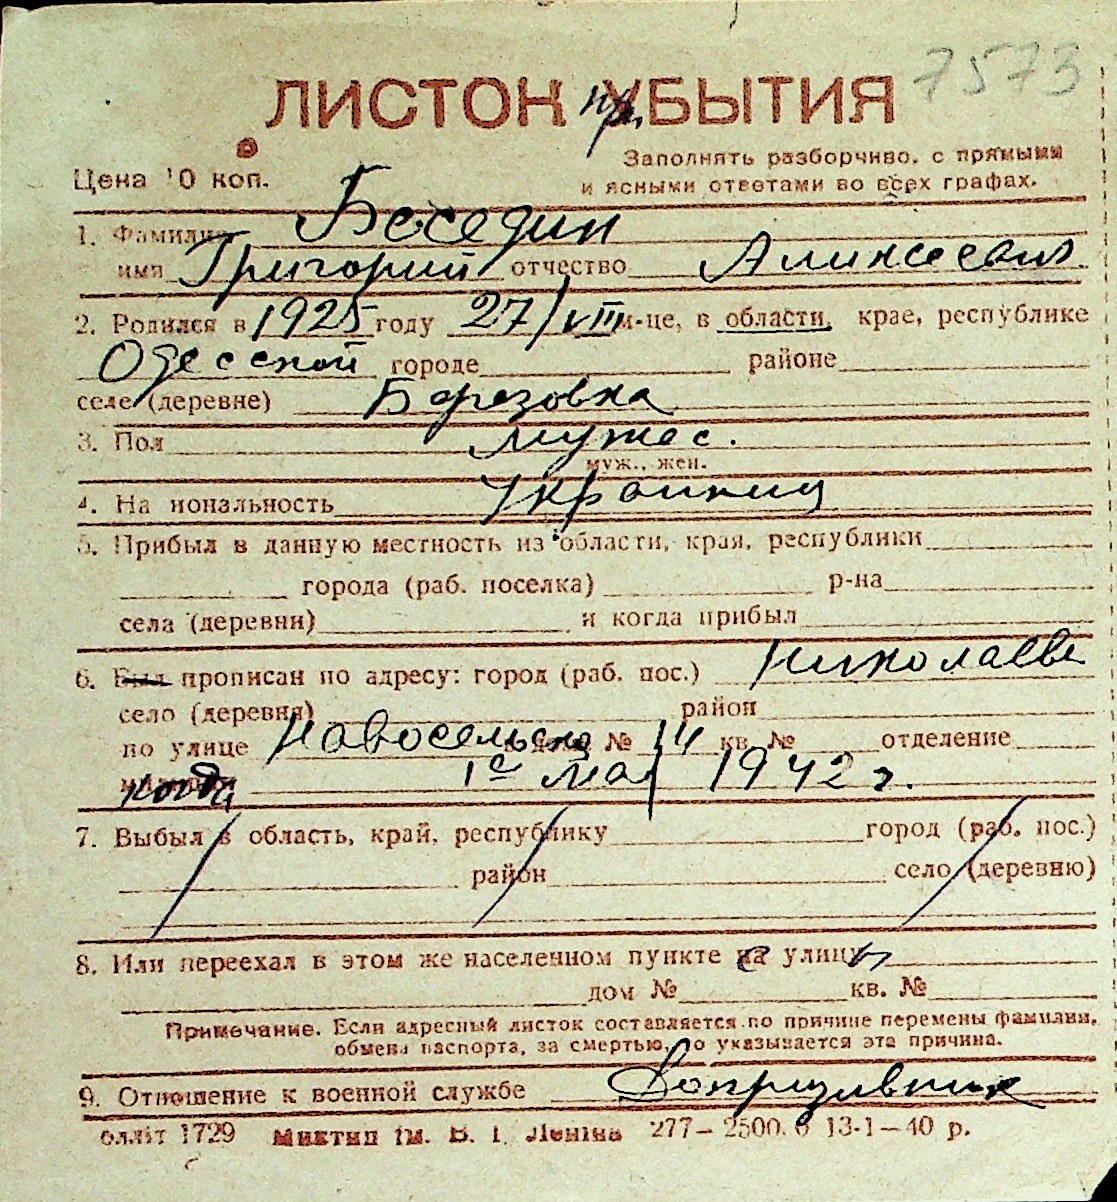 7573
ЛИСТОК пр. УБЫТИЯ
Заполнять разборчиво, с прямыми
Цена 10 коп.
и ясными ответами во всех графах.
1. Фамилия Беседин
имя Григорий отчество Аликсеевич
2. Родился в 1925 году 27/VIII м-це, в области, крае, республике
Одесской городе районе
селе (деревне) Березовка
3. Пол мужес.
муж., жен.
4. Национальность Украинец
5. Прибыл в данную местность из области, края, республики
города (раб. поселка) р-на
села (деревни) и когда прибыл
6. Был прописан по адресу: город (раб. пос.) Николаеве
село (деревня) район
по улице Новосельско № 14 кв. № отделение
когда 1е мая 1942 г.
7. Выбыл в область, край, республику город (раб. пос.)
район село (деревню)
8. Или переехал в этом же населенном пункте с улицы
дом № кв. №
Примечание. Если адресный листок составляется по причине перемены фамилии,
обмена паспорта, за смертью, то указывается эта причина.
9. Отношение к военной службе Допризывник
оллiт 1729 Миктип iм. В. I. Ленiна 277—2500. 13-1—40 р.